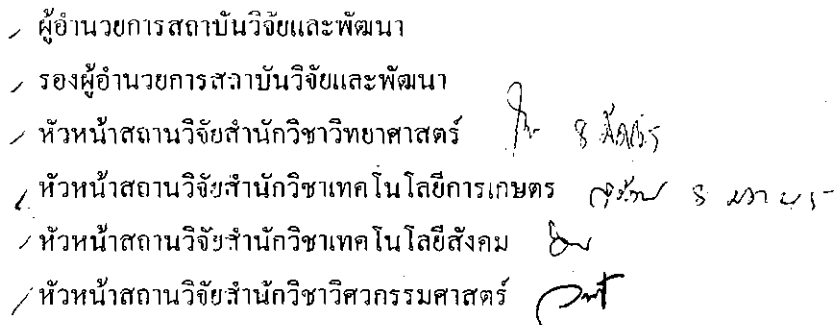 ผู้อำนวยการสถาบันวิจัยและพัฒนา
รองผู้อำนวยการสถาบันวิจัยและพัฒนา
หัวหน้าสถานวิจัยสำนักวิชาวิทยาศาสตร์
หัวหน้าสถานวิจัยสำนักวิชาเทคโนโลยีการเกษตร
หัวหน้าสถานวิจัยสำนักวิชาเทคโนโลยีสังคม
หัวหน้าสถานวิจัยสำนักวิชาวิศวกรรมศาสตร์